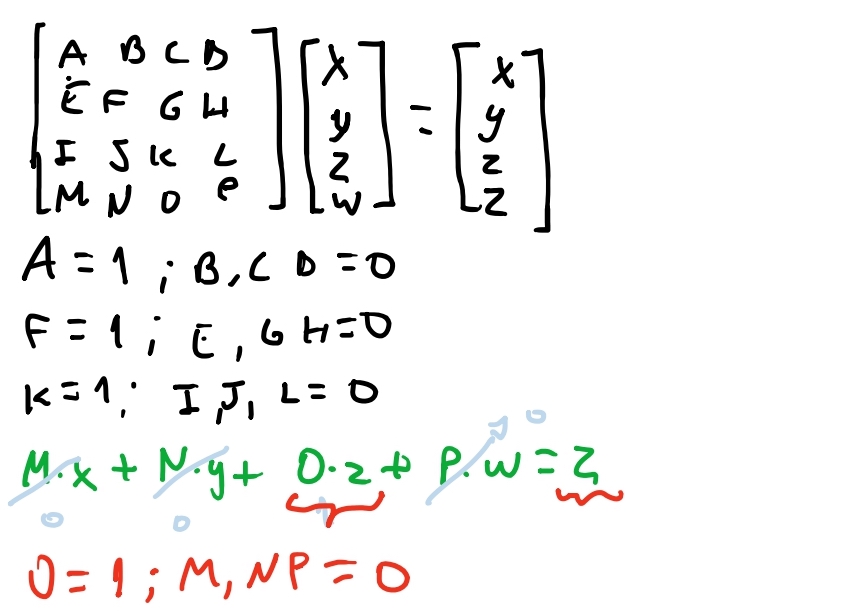 [ A B C D ] [ x ] = [ x ]
[ E F G H ] [ y ] [ y ]
[ I J K L ] [ z ] [ z ]
[ M N O P ] [ w ] [ z ]
A = 1 ; B, C D = 0
F = 1 ; E, G H = 0
K = 1 ; I, J, L = 0
M·x + N·y + O·z + P·w = z
0 0 0
O = 1 ; M, N P = 0